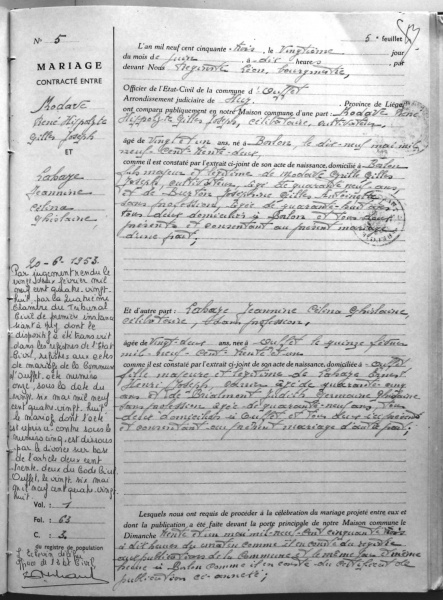 N° 5
MARIAGE
CONTRACTÉ ENTRE
Modave
René Hippolyte
Gilles Joseph
ET
Labaye
Jeannine
Célina
Ghislaine
20-6-1953
Par jugement rendu le
vingt février mil
neuf cent quatre-vingt
huit par la quatrième
chambre du Tribunal
civil de première instance
séant à Huy dont le
dispositif a été transcrit
dans les registres de l'Etat
Civil, registre aux actes
de mariage de la Commune
d'Ouffet, acte numéro
onze, sous la date du
vingt six mai mil neuf
cent quatre-vingt huit
le mariage dont l'acte
est repris ci contre sous le
numéro cinq, est dissous
par le divorce sur base
de l'article deux cent
trente deux du Code Civil.
Ouffet, le vingt six mai
mil neuf cent quatre-vingt
huit.
Vol. : 1
Fol. : 63
C. : 3
du registre de population
5e feuillet
L'an mil neuf cent cinquante trois, le vingtième jour
du mois de juin à dix heures, par
devant Nous Léon, bourgmestre,
Officier de l'Etat-Civil de la commune d'Ouffet
Arrondissement judiciaire de Huy Province de Liége,
ont comparu publiquement en notre Maison commune d'une part: Modave René
Hippolyte Gilles Joseph, célibataire, cultivateur,
âgé de vingt et un ans, né à Borlon, le dix-neuf mai mil
neuf cent trente-deux,
comme il est constaté par l'extrait ci-joint de son acte de naissance, domicilié à Borlon
fils majeur et légitime de Modave Gilles
Joseph, cultivateur, âgé de quarante-neuf ans,
et de Joséphine Gilles Antoinette
sans profession, âgée de quarante-huit ans
tous deux domiciliés à Borlon et tous deux
présents et consentant au présent mariage
d'une part;
Et d'autre part: Labaye Jeannine Célina Ghislaine,
célibataire, sans profession,
âgée de vingt-deux ans, née à Ouffet le quinze février
mil-neuf-cent-trente et un
comme il est constaté par l'extrait ci-joint de son acte de naissance, domiciliée à Ouffet
fille majeure et légitime de Labaye
Henri Joseph, âgé de quarante-cinq
ans et de Judith Germaine Ghislaine
sans profession âgée de quarante-neuf ans, tous
deux domiciliés à Ouffet et tous deux présents
et consentant au présent mariage d'autre part;
Lesquels nous ont requis de procéder à la célébration du mariage projeté entre eux et
dont la publication, a été faite devant la porte principale de notre Maison commune le
Dimanche trente et un mai mil-neuf-cent cinquante trois
à dix heures du matin comme il est constaté du registre
aux publications de la Commune et le même jour à même
heure à Borlon comme il en conste du certificat de
publication ci-annexé;